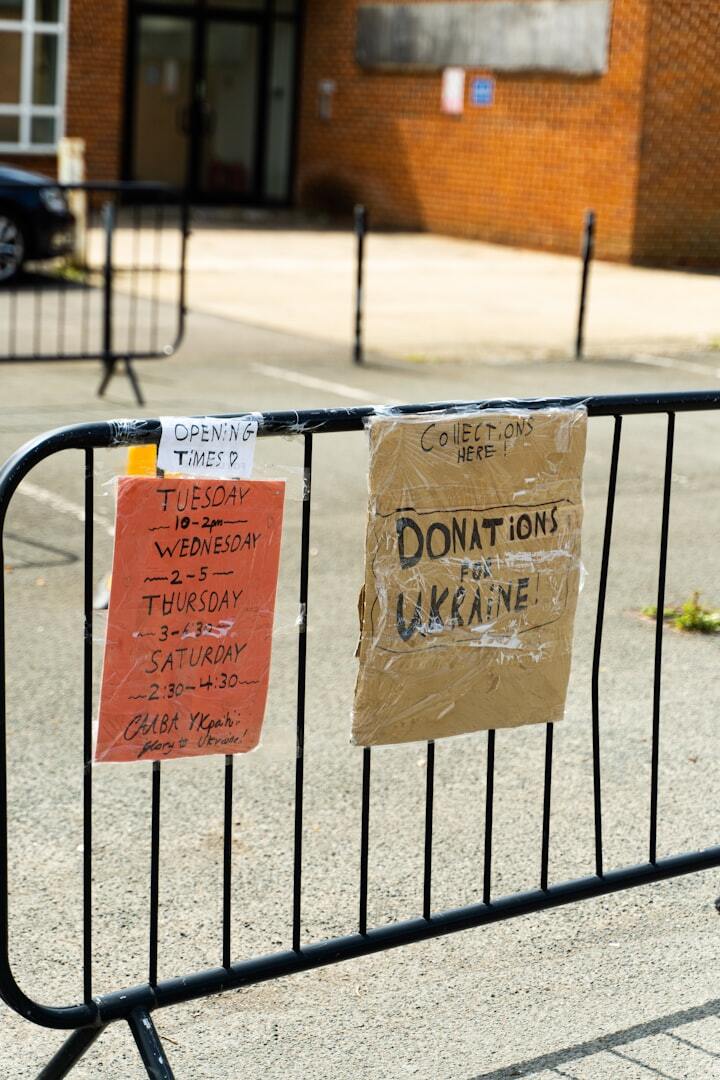 OPENING
TIMES ♡
TUESDAY
~ 10-2pm ~
WEDNESDAY
~ 2-5 ~
THURSDAY
~ 3-6:30 ~
SATURDAY
~ 2:30-4:30 ~
СЛАВА УКраїні
glory to Ukraine!
COllECTiONS
HERE!
DONATiONS
FOR
UKRAiNE!